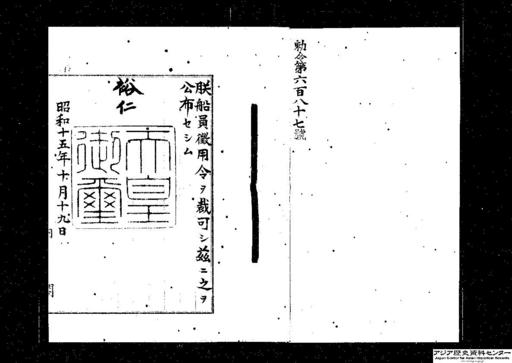 勅令第六百八十七號
朕船員徴用令ヲ裁可シ茲ニ之ヲ
公布セシム
裕仁
天皇
御璽
昭和十五年十月十九日
アジア歴史資料センター
Japan Center for Asian Historical Records